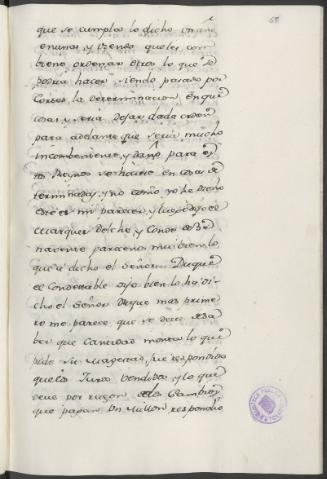 68
que se cumpla lo dicho
en unas y viendo que les con
biene ordenar otros lo que se
podra hacer siendo pasado por
Cortes la determinacion en que
cosas y seria dejar dada orden
para adelante que seria mucho
incombeniente, y daño para
Reynos se hiciese en cosas de
terminadas, y no como yo he dicho
este es mi parecer, y
Marques Delche y Conde de Be
navente pareceme mui bien lo
que à dicho el Señor Duque
el Condestable dijo bien lo ha di
cho el Señor Duque mas prime
ro me parece que se deve de Sa
ber que Cantidad monta lo que
pide Su Magestad, fue respondido
que los Juros vendidos y lo que
deve por razon de los Cambios
que pagan Un Millon respondio